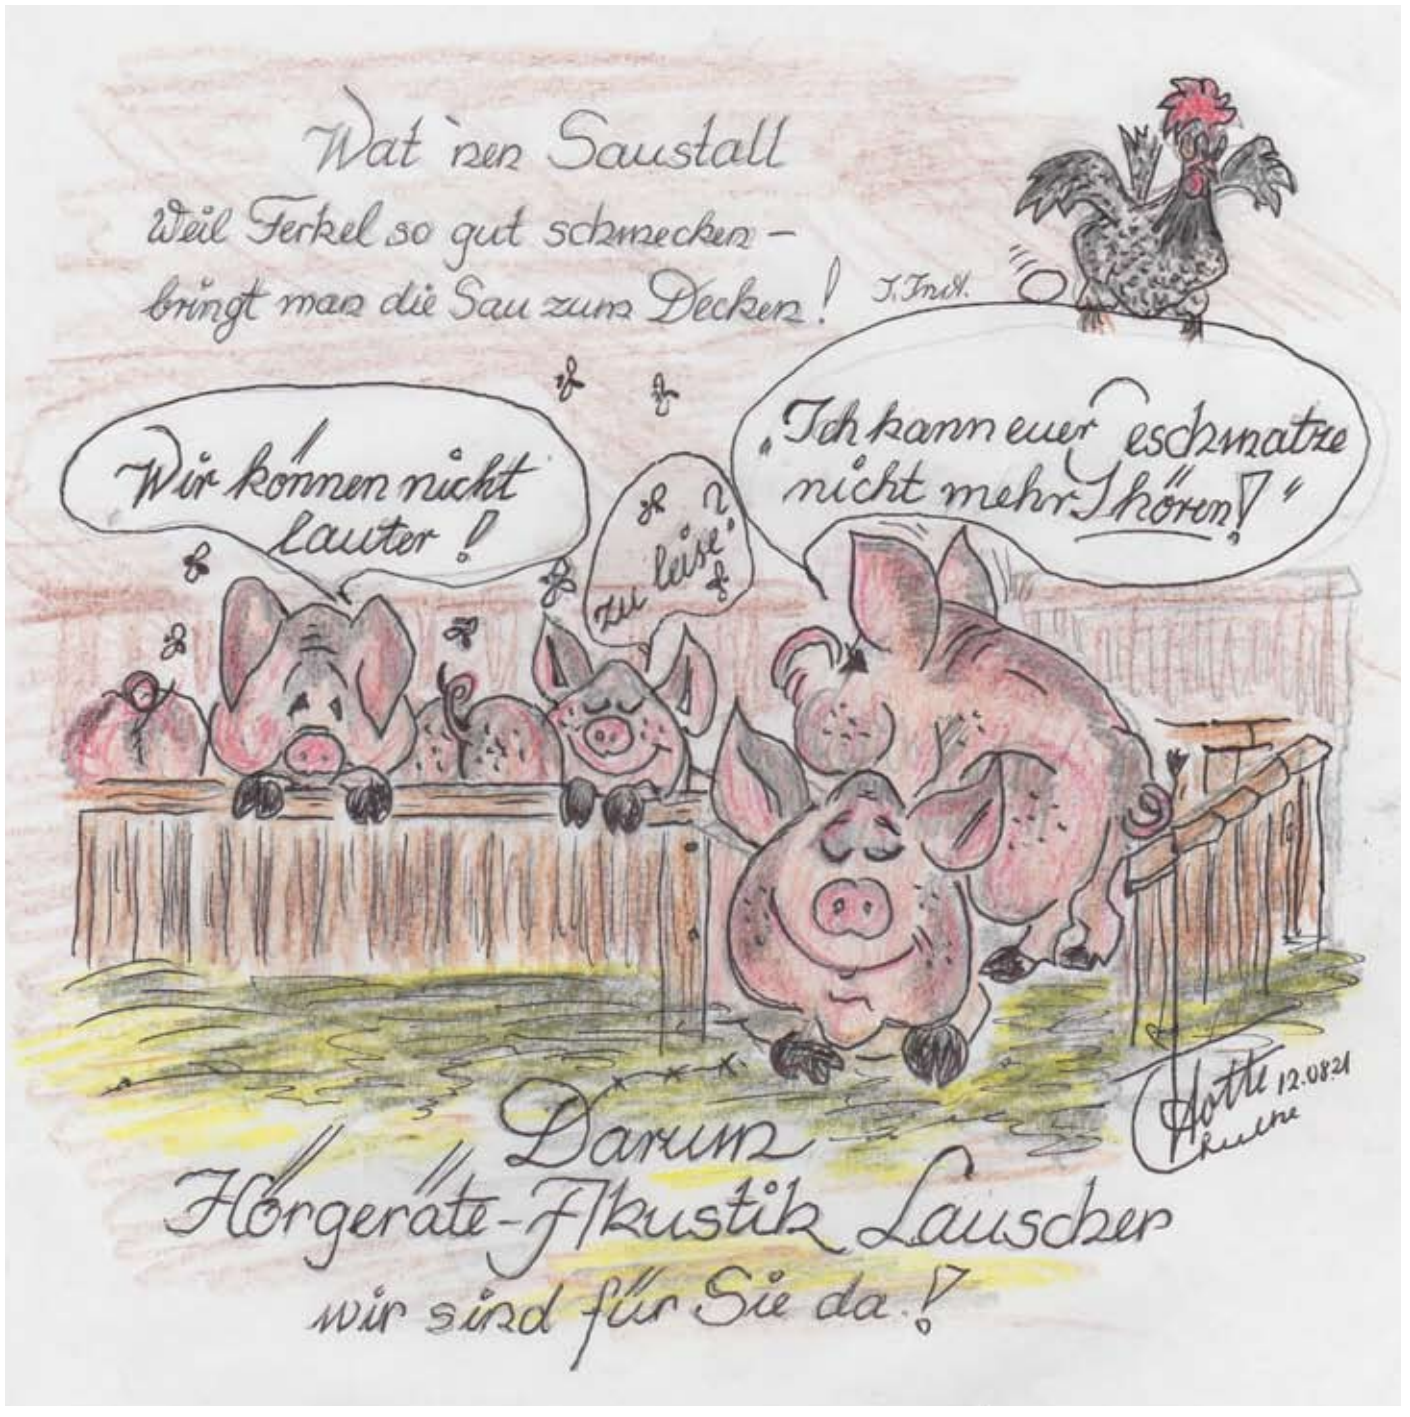 Wat 'nen Saustall
Weil Ferkel so gut schmecken –
bringt man die Sau zum Decken!
Wir können nicht
lauter!
zu leise?
„Ich kann euer Geschmatze
nicht mehr hören!"
Darum
Hörgeräte-Akustik Lauscher
wir sind für Sie da!
Hotte 12.08.21